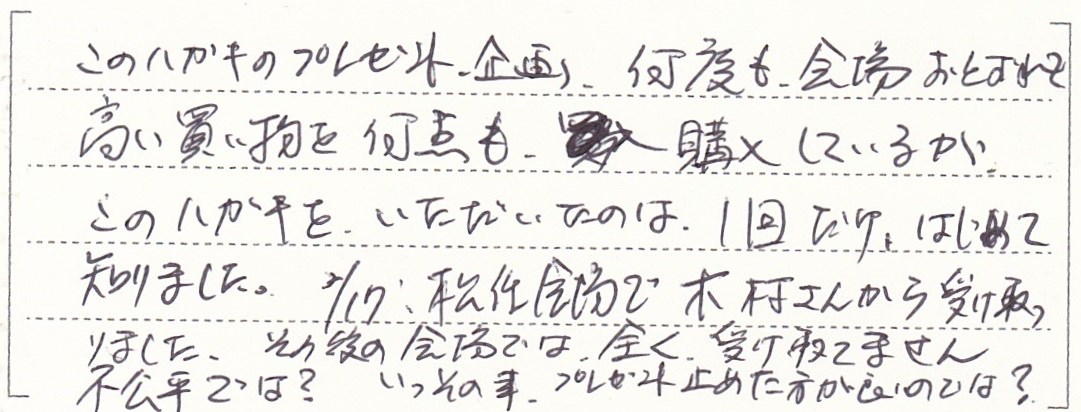 このハガキのプレゼント、企画、何度も、会場おとずれて
高い買い物を何点も、購入しているが、
このハガキを、いただいたのは、1回だけ、はじめて
知りました。2/17:松任会場で木村さんから受け取っ
りました、その後の会場では、全く、受け取てません
不公平では?いっその事、プレゼント止めた方が良いのでは?